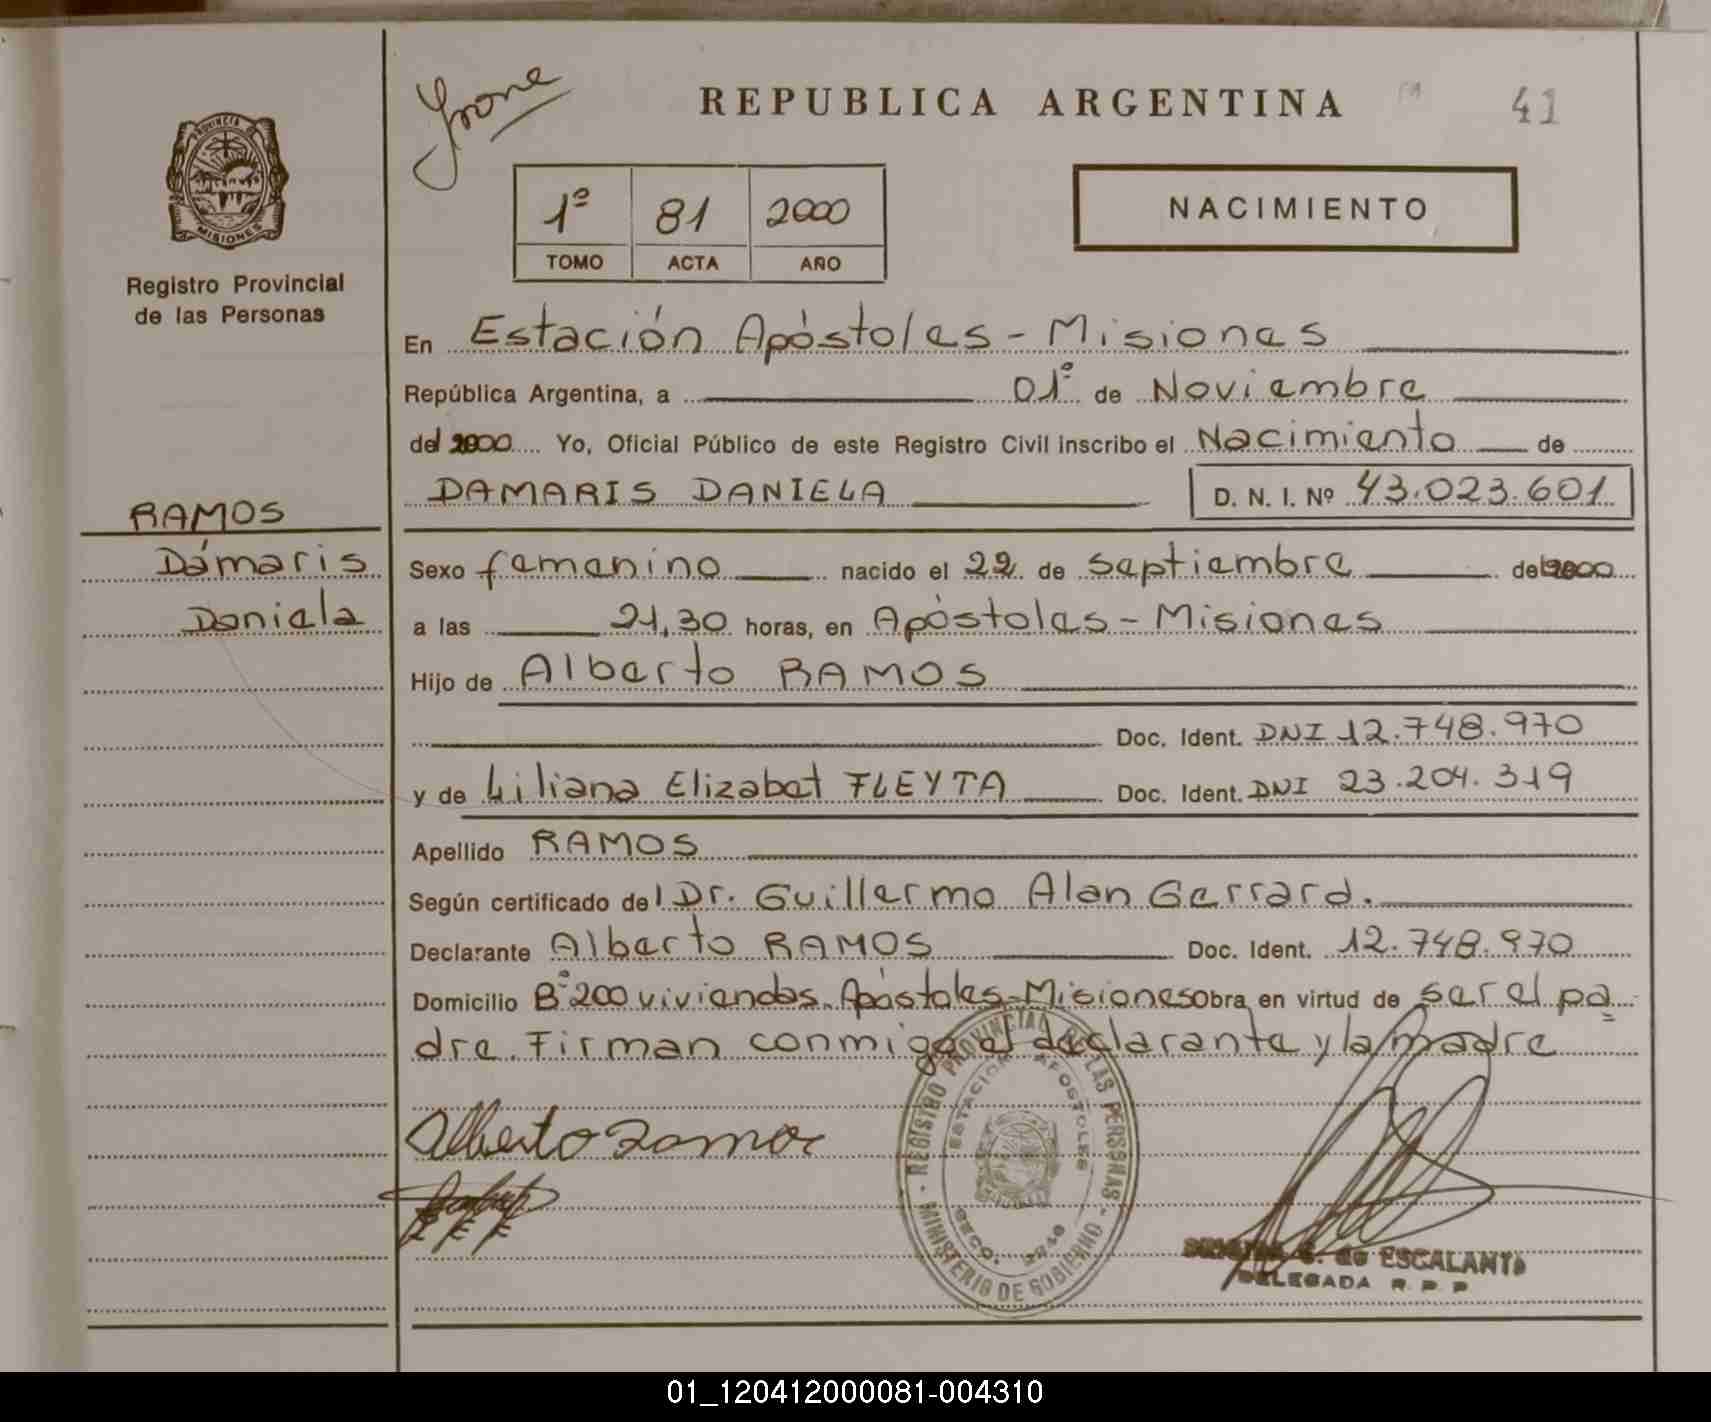 Irone
REPUBLICA ARGENTINA
41
PROVINCIA DE
MISIONES
Registro Provincial
de las Personas
1º 81 2000
TOMO ACTA AÑO
NACIMIENTO
En Estación Apóstoles - Misiones
República Argentina, a 01º de Noviembre
del 2000 Yo, Oficial Público de este Registro Civil inscribo el Nacimiento de
DAMARIS DANIELA D. N. I. Nº 43.023.601
RAMOS
Dámaris
Daniela
Sexo femenino nacido el 22 de septiembre del 2000
a las 21,30 horas, en Apóstoles - Misiones
Hijo de Alberto RAMOS
Doc. Ident. DNI 12.748.970
y de Liliana Elizabet FLEYTA Doc. Ident. DNI 23.204.319
Apellido RAMOS
Según certificado del Dr. Guillermo Alan Gerrard.
Declarante Alberto RAMOS Doc. Ident. 12.748.970
Domicilio Bº 200 viviendas. Apóstoles - Misiones obra en virtud de ser el pa
dre. Firman conmigo el declarante y la madre
Alberto Ramos
REGISTRO PROVINCIAL DE LAS PERSONAS - MINISTERIO DE GOBIERNO -
ESTACION APOSTOLES
de ESCALANTE
DELEGADA R. P. P.
01_120412000081-004310